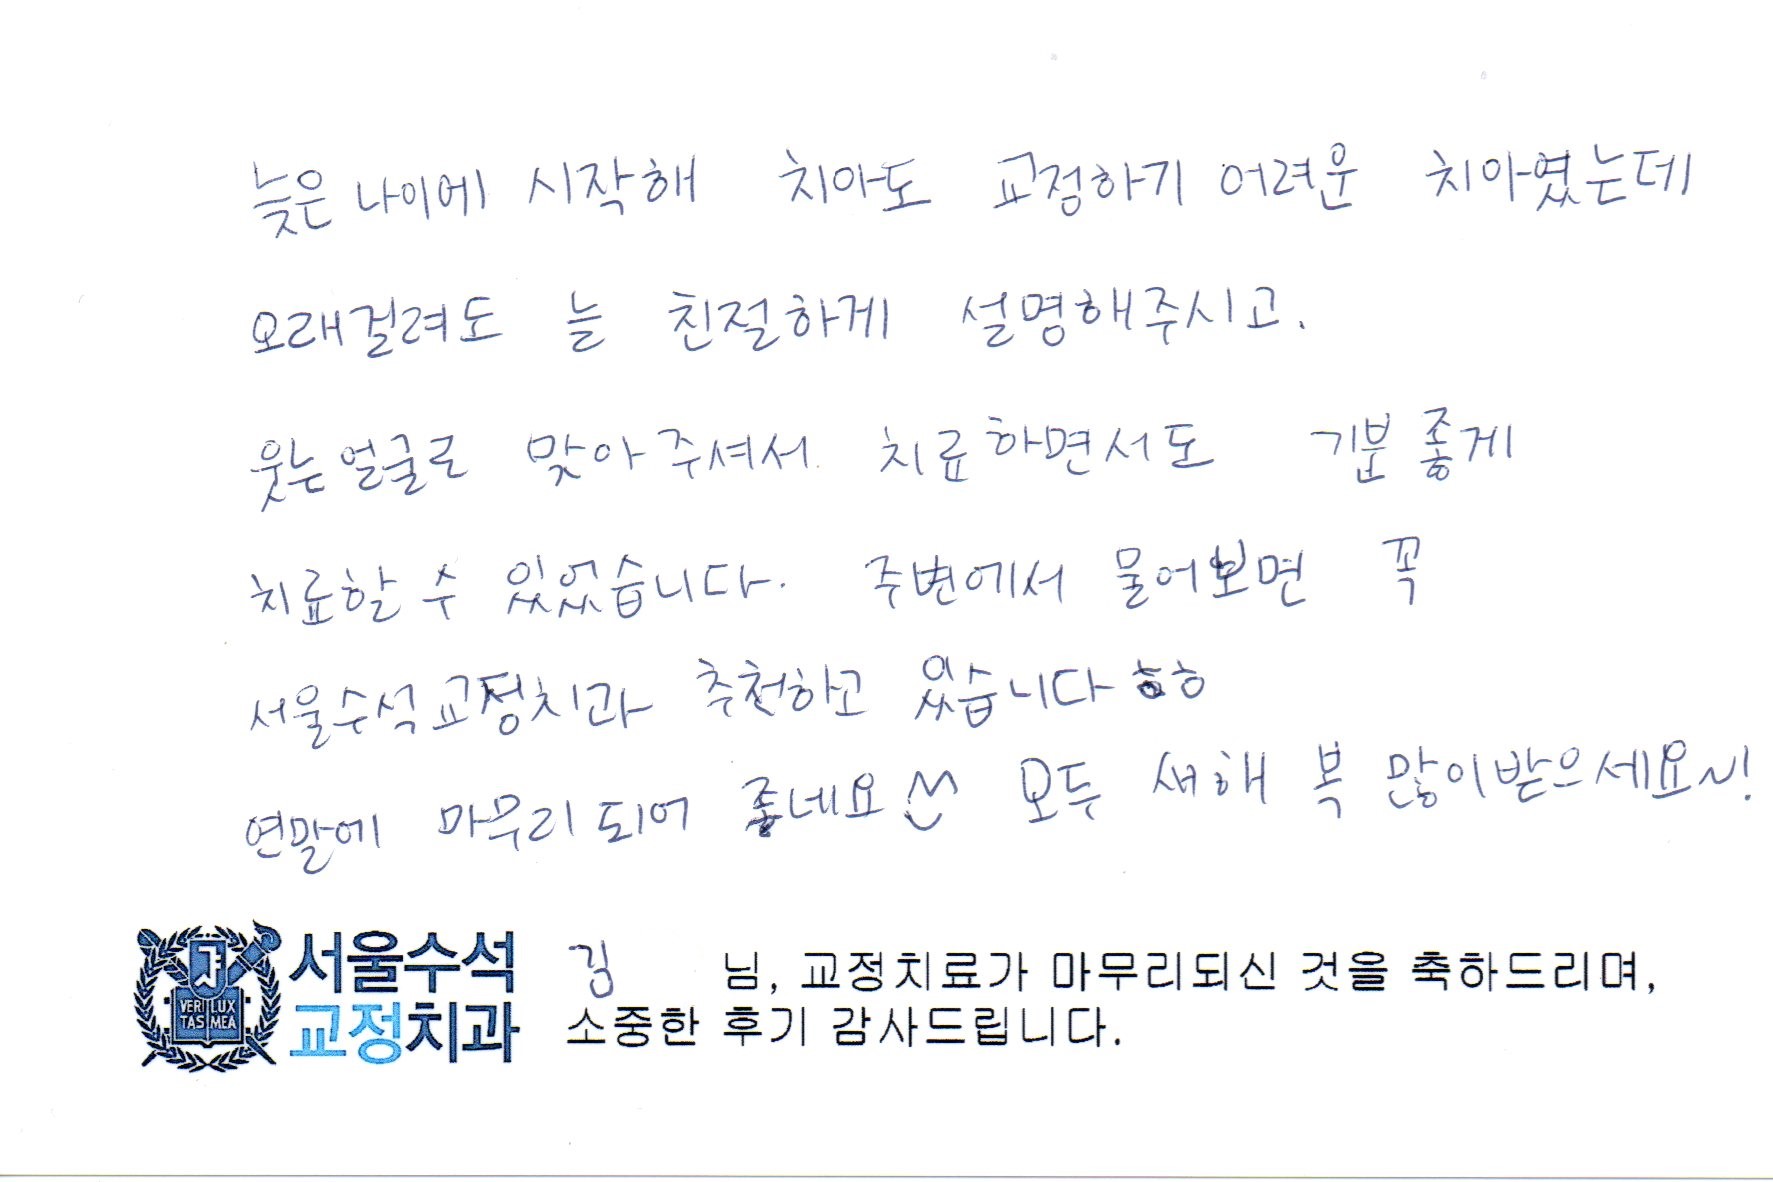 늦은 나이에 시작해 치아도 교정하기 어려운 치아였는데
오래걸려도 늘 친절하게 설명해주시고.
웃는 얼굴로 맞아주셔서 치료하면서도 기분좋게
치료할 수 있었습니다. 주변에서 물어보면 꼭
서울수석교정치과 추천하고 있습니다ㅎㅎ
연말에 마무리 되어 좋네요^^ 모두 새해 복 많이받으세요~!
서울수석
교정치과
VERI LUX
TAS MEA
김 님, 교정치료가 마무리되신 것을 축하드리며,
소중한 후기 감사드립니다.